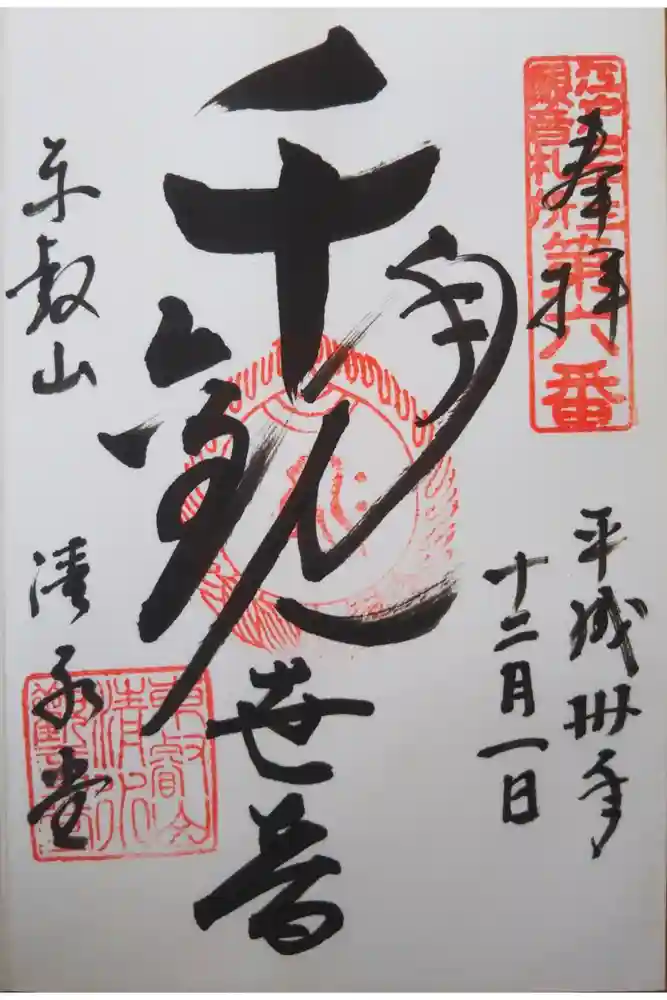 奉拝
江戸三十三
観音札所
第六番
平成卅年
十二月一日
千手観世音
東叡山
清水堂
東叡山
清水
観音堂